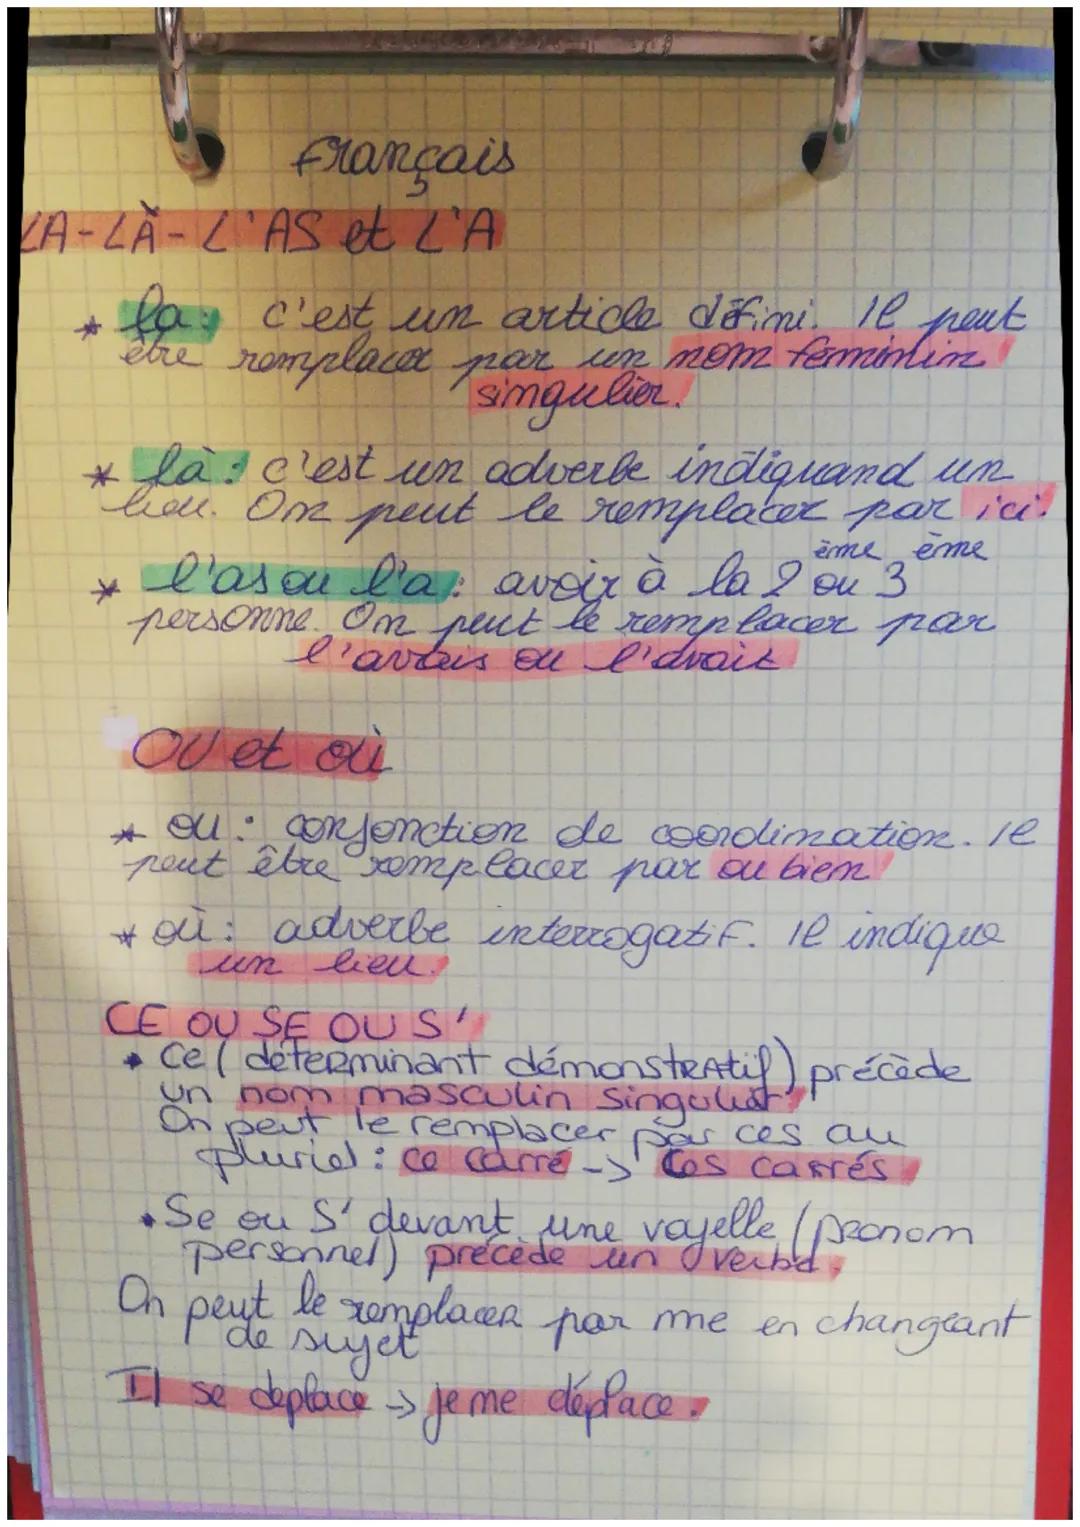 Français
LA - LÀ - L'AS et L'A
* la : c'est un article défini. Il peut
être remplacer par un nom femminin
singulier.
* là : c'est un adverbe indiquand un
lieu. On peut le remplacer par ici.
* l'as ou l'a : avoir à la 2ème ou 3ème
personne. On peut le remplacer par
l'avais ou l'avait
OU et où
* ou : conjonction de coordination. Il
peut être remplacer par ou bien
* où : adverbe interrogatif. Il indique
un lieu.
CE OU SE OU S'
• Ce ( déterminant démonstratif) précède
un nom masculin singulier
On peut le remplacer par ces au
pluriel : ce carré -> Ces carrés.
• Se ou S' devant une voyelle (pronom
personnel) précède un verbe.
On peut le remplacer par me en changeant
de sujet
Il se deplace -> je me déplace.